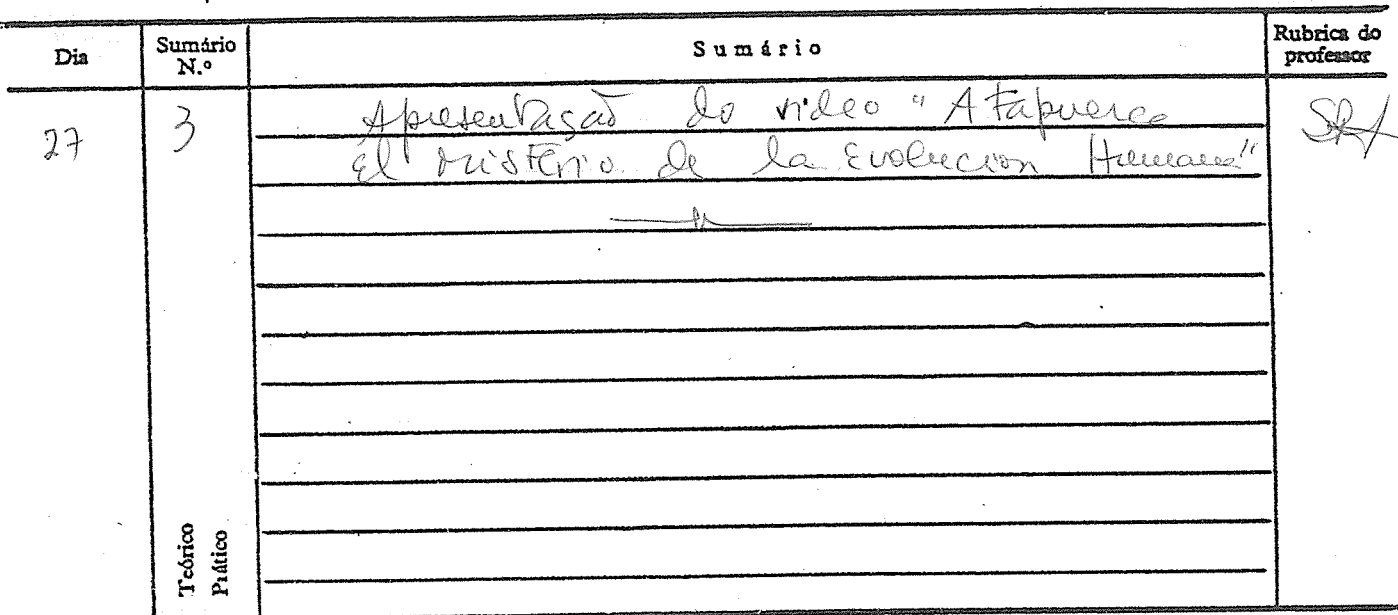 Dia
Sumário N.º
Sumário
Rubrica do professor
27
3
Apresentação do video "Atapuerca
El Mistério de la Evolucion Humana"
Teórico
Prático